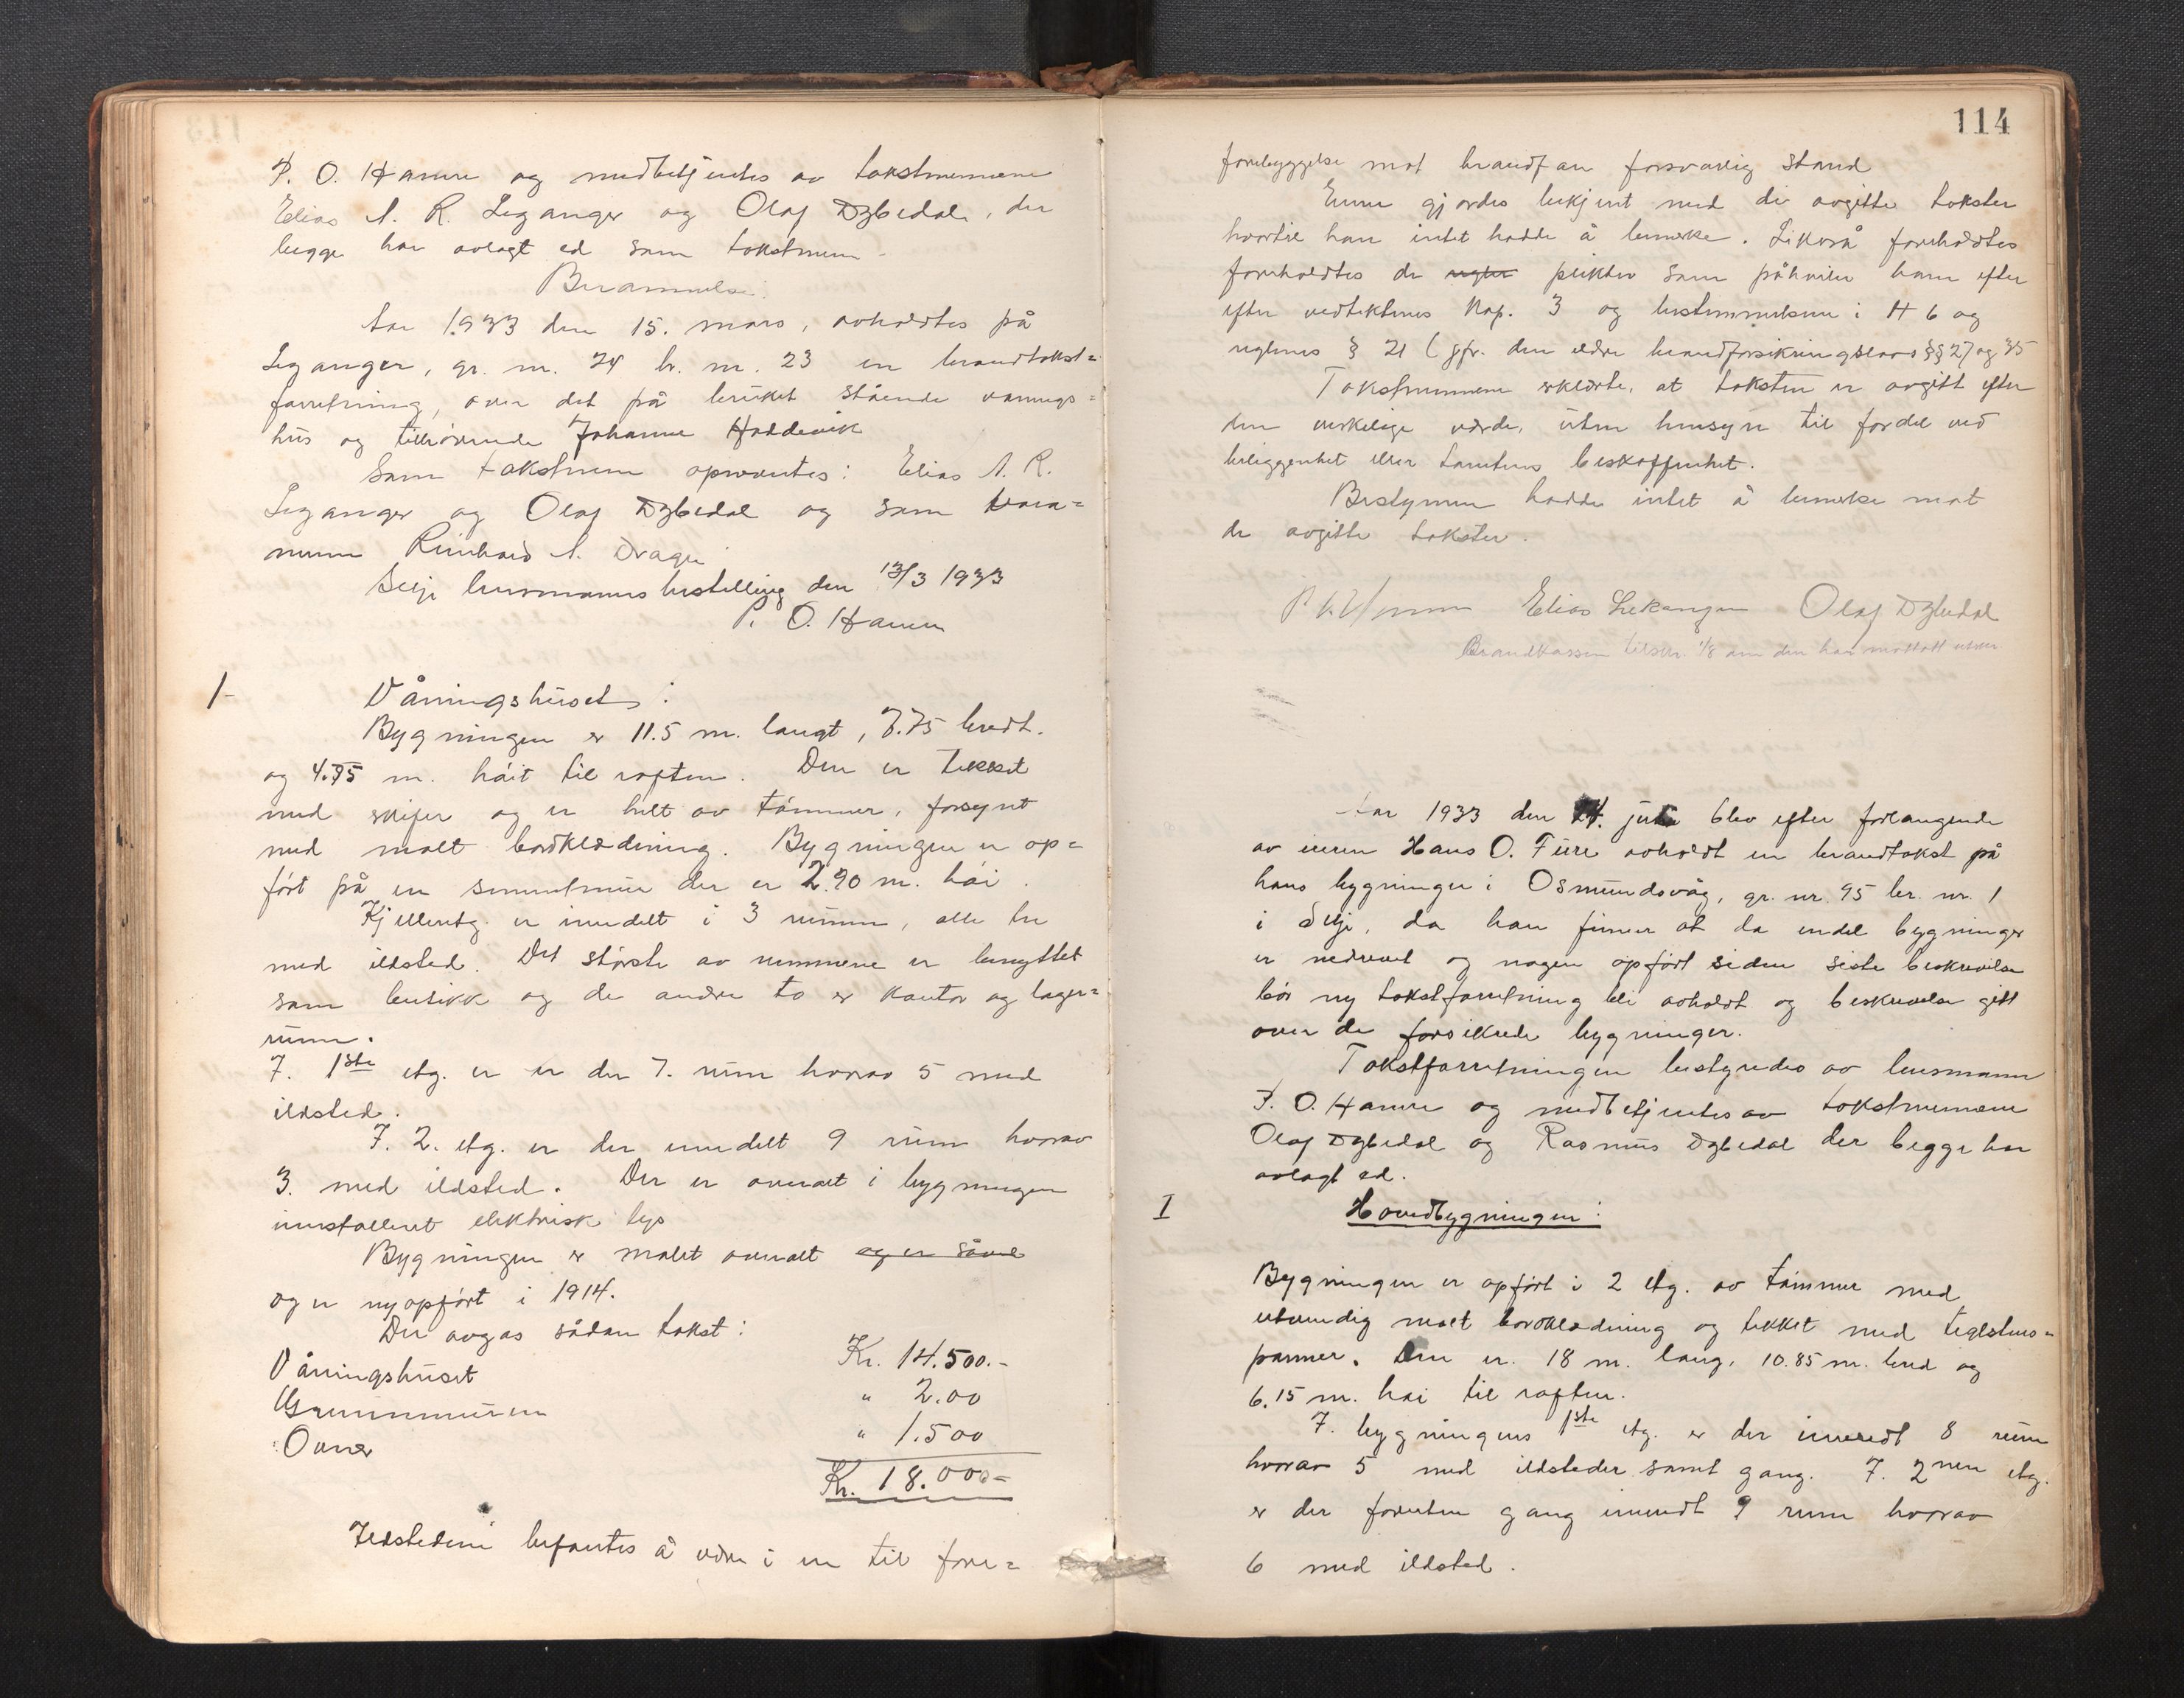 P. O. Hamre og medbetjentes av takstmennene
Elias A. R. Leganger og Olaf Dybedal, der
begge har avlagt ed som takstmenn.
Berammelse.
Aar 1933 den 15. mars, avholdtes på
Leganger, gr. nr. 74 br. nr. 23 en brandtakst=
forretning, over det på bruket stående vånings=
hus og tilhörende Johanne Hoddevik
Som takstmenn opnevntes: Elias A. R.
Leganger og Olaf Dybedal og som vara=
menn Reinhard A. Drage
Selje lensmannsbestilling den 13/3 1933
P. O. Hamre
1-
Våningshuset:
Bygningen er 11.5 m. langt, 7.75 bredt.
og 4.75 m. höit til raften. Den er tekket
med skifer og er helt av tömmer, forsynt
med malt bordklædning. Bygningen er op=
fört på en sementmur der er 2.90 m. höi.
Kjelleretg. er inndelt i 3 rumm, alle tre
med ildsted. Det störste av rummene er benyttet
som butikk og de andre to er kontor og lager=
rum.
I. 1ste etg. er er der 7. rum hvorav 5 med
ildsted.
I. 2. etg. er der inndelt 9 rum hvorav
3. med ildsted. Der er overalt i bygningen
innstalleret elektrisk lys
Bygningen er malet overalt og er såvel
og er nyopfört i 1914.
Der avgas sådan takst:
Våningshuset Kr. 14.500.-
Grunnmuren " 2.00
Ovner " 1.500
Kr. 18.000-
Ildstedene befantes å være i en til fore=
114
forebyggelse mot brandfare forsvarlig stand
Eieren gjordes bekjent med de avgitte takster
hvortil han intet hadde å bemerke. Likeså foreholdtes
foreholdtes de regler plikter som påhviler ham efter
efter vedtektenes Kap. 3 og bestemmelsene i H 6 og
reglenes § 21 (jfr. den eldre brandforsikringslovs §§ 27 og 35
Takstmennene erklærte, at taksten er avgitt efter
den virkelige værdi, uten hensyn til fordel ved
beliggenhet eller tomtens beskaffenhet.
Bestyreren hadde intet å bemerke mot
de avgitte takster.
P. O. Hamre Elias Lekanger Olaf Dybedal
Brandkassen tilskr. 1/8 om den har mottatt
Aar 1933 den 14. juli blev efter forlangende
av eieren Hans O. Fure avholdt en brandtakst på
hans bygninger i Osmundsvåg, gr. nr. 95 br. nr. 1
i Selje, da han finner at da endel bygninger
er nedrevet og nogen opfört siden siste beskrivelse
bör ny takstforretning bli avholdt og beskrivelse gitt
over de forsikrede bygninger.
Takstforretningen bestyredes av lensmann
P. O. Hamre og medbetjentes av takstmennene
Olaf Dybedal og Rasmus Dybedal der begge har
avlagt ed.
I
Hovedbygningen:
Bygningen er opfört i 2 etg. av tömmer med
utvendig malt bordklædning og tekket med teglstens=
panner. Den er. 18 m. lang, 10.85 m. bred og
6.15 m. höi til raften.
I. bygningens 1ste etg. er der inneredt 8 rum
hvorav 5 med ildsteder samt gang. I. 2nen etg.
er der foruten gang inneredt 9 rum hvorav
6 med ildsted.